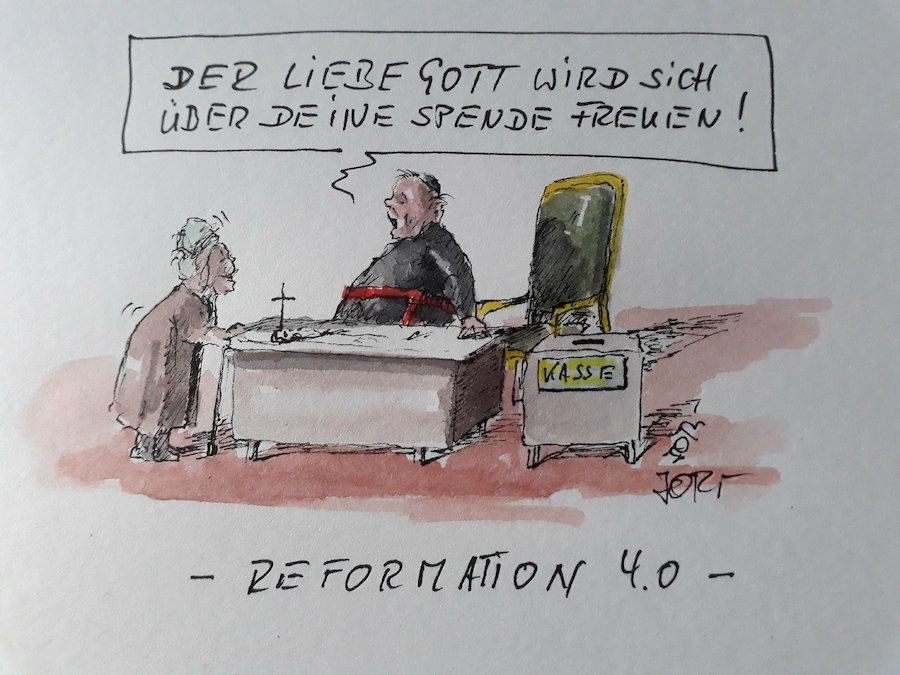 DER LIEBE GOTT WIRD SICH
ÜBER DEINE SPENDE FREUEN!
KASSE
JORI
- REFORMATION 4.0 -